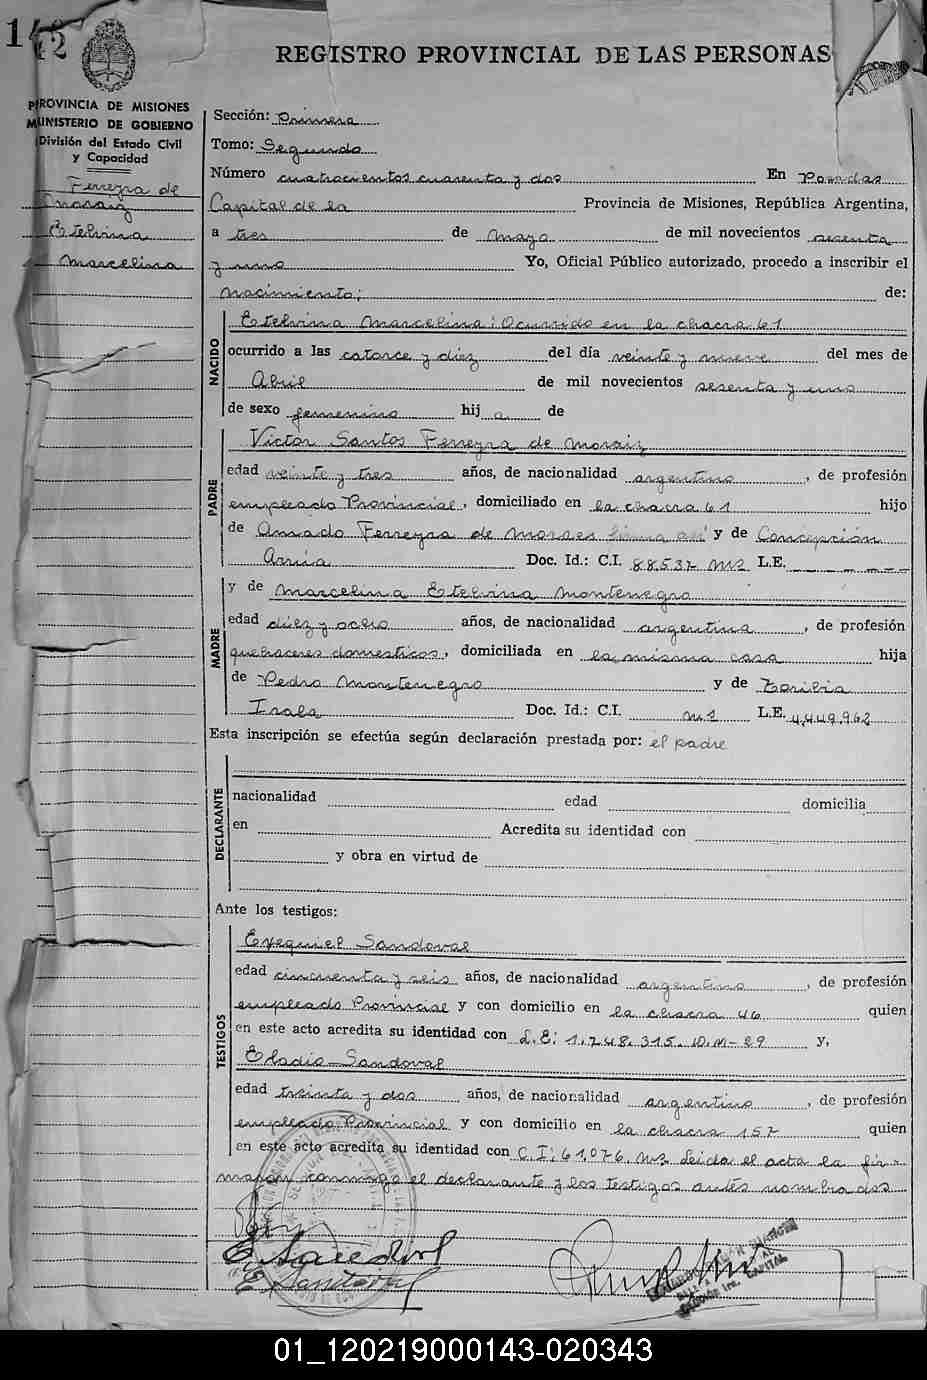 142
REGISTRO PROVINCIAL DE LAS PERSONAS
PROVINCIA DE MISIONES
MINISTERIO DE GOBIERNO
División del Estado Civil
y Capacidad
Ferreyra de
Moraiz
Etelvina
Marcelina
Sección: Primera
Tomo: Segundo
Número cuatrocientos cuarenta y dos En Posadas
Capital de la Provincia de Misiones, República Argentina,
a tres de Mayo de mil novecientos sesenta
y uno Yo, Oficial Público autorizado, procedo a inscribir el
Nacimiento; de:
NACIDO
Etelvina Marcelina: Ocurrido en la chacra 61
ocurrido a las catorce y diez del día veinte y nueve del mes de
Abril de mil novecientos sesenta y uno
de sexo femenino hij a de
PADRE
Victor Santos Ferreyra de Moraiz
edad veinte y tres años, de nacionalidad argentino, de profesión
empleado Provincial, domiciliado en la chacra 61 hijo
de Amado Ferreyra de Moraes firma así y de Concepción
Doc. Id.: C.I. 88537 M2 L.E.
MADRE
y de Marcelina Etelvina Montenegro
edad diez y ocho años, de nacionalidad argentina, de profesión
quehaceres domesticos, domiciliada en la misma casa hija
de Pedro Montenegro y de Toribia
Irala Doc. Id.: C.I. M1 L.E. 4.449.962
Esta inscripción se efectúa según declaración prestada por: el padre
DECLARANTE
nacionalidad edad domicilia
en Acredita su identidad con
y obra en virtud de
Ante los testigos:
TESTIGOS
Exequiel Sandoval
edad cincuenta y seis años, de nacionalidad argentino, de profesión
empleado Provincial y con domicilio en la chacra 46 quien
en este acto acredita su identidad con L.E: 1.748.315. D.M-29 y,
Eladio Sandoval
edad treinta y dos años, de nacionalidad argentino, de profesión
empleado Provincial y con domicilio en la chacra 157 quien
en este acto acredita su identidad con C.I: 61.076. M2 Leida el acta la fir-
maron conmigo el declarante y los testigos antes nombrados
E Sandoval
E Sandoval
01_120219000143-020343